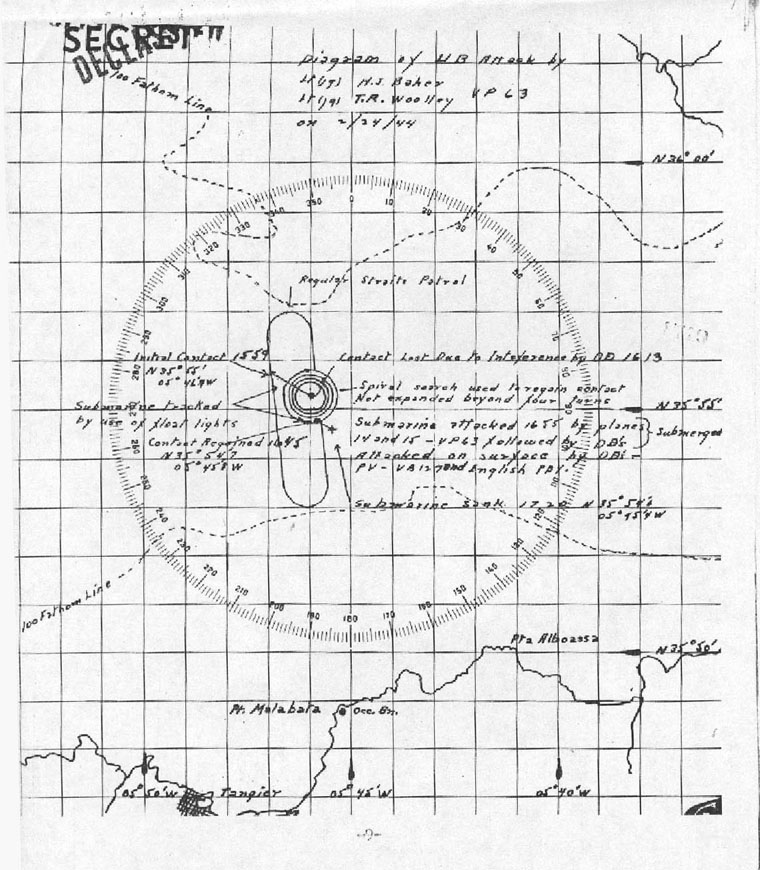 SECRET
DECLASSIFIED
Diagram of UB Attack by
Lt(jg) H.J. Baker
Lt(jg) T.R. Woolley VP63
on 2/24/44
100 Fathom Line
N 36° 00'
340 350 0 10 20
330 30
320 40
310 50
300 60
290 70
280
Regular Straits Patrol
Initial Contact 1559
N 35° 55'
Contact Lost Due to Inteference by DD 1613
Spiral search used to regain contact
Not expanded beyond four turns
N 35° 55'
Submarine tracked
by use of float lights
Contact Regained 1645
N 35° 54'7
05° 45'8 W
Submarine attacked 1655 by planes
14 and 15 - VP63 followed by DD's
Submerged
Attacked on surface by DD's -
PV - VB127 and English PBY.
Submarine sank 1720 N 35° 54'6
05° 45'4 W
260
250
240 120
230 130
220 140
210 150
200 190 180 170 160
100 Fathom Line
Pta Alboassa
N 35° 50'
Pt. Malabata Occ. Bn.
05° 50' W Tangier 05° 45' W 05° 40' W